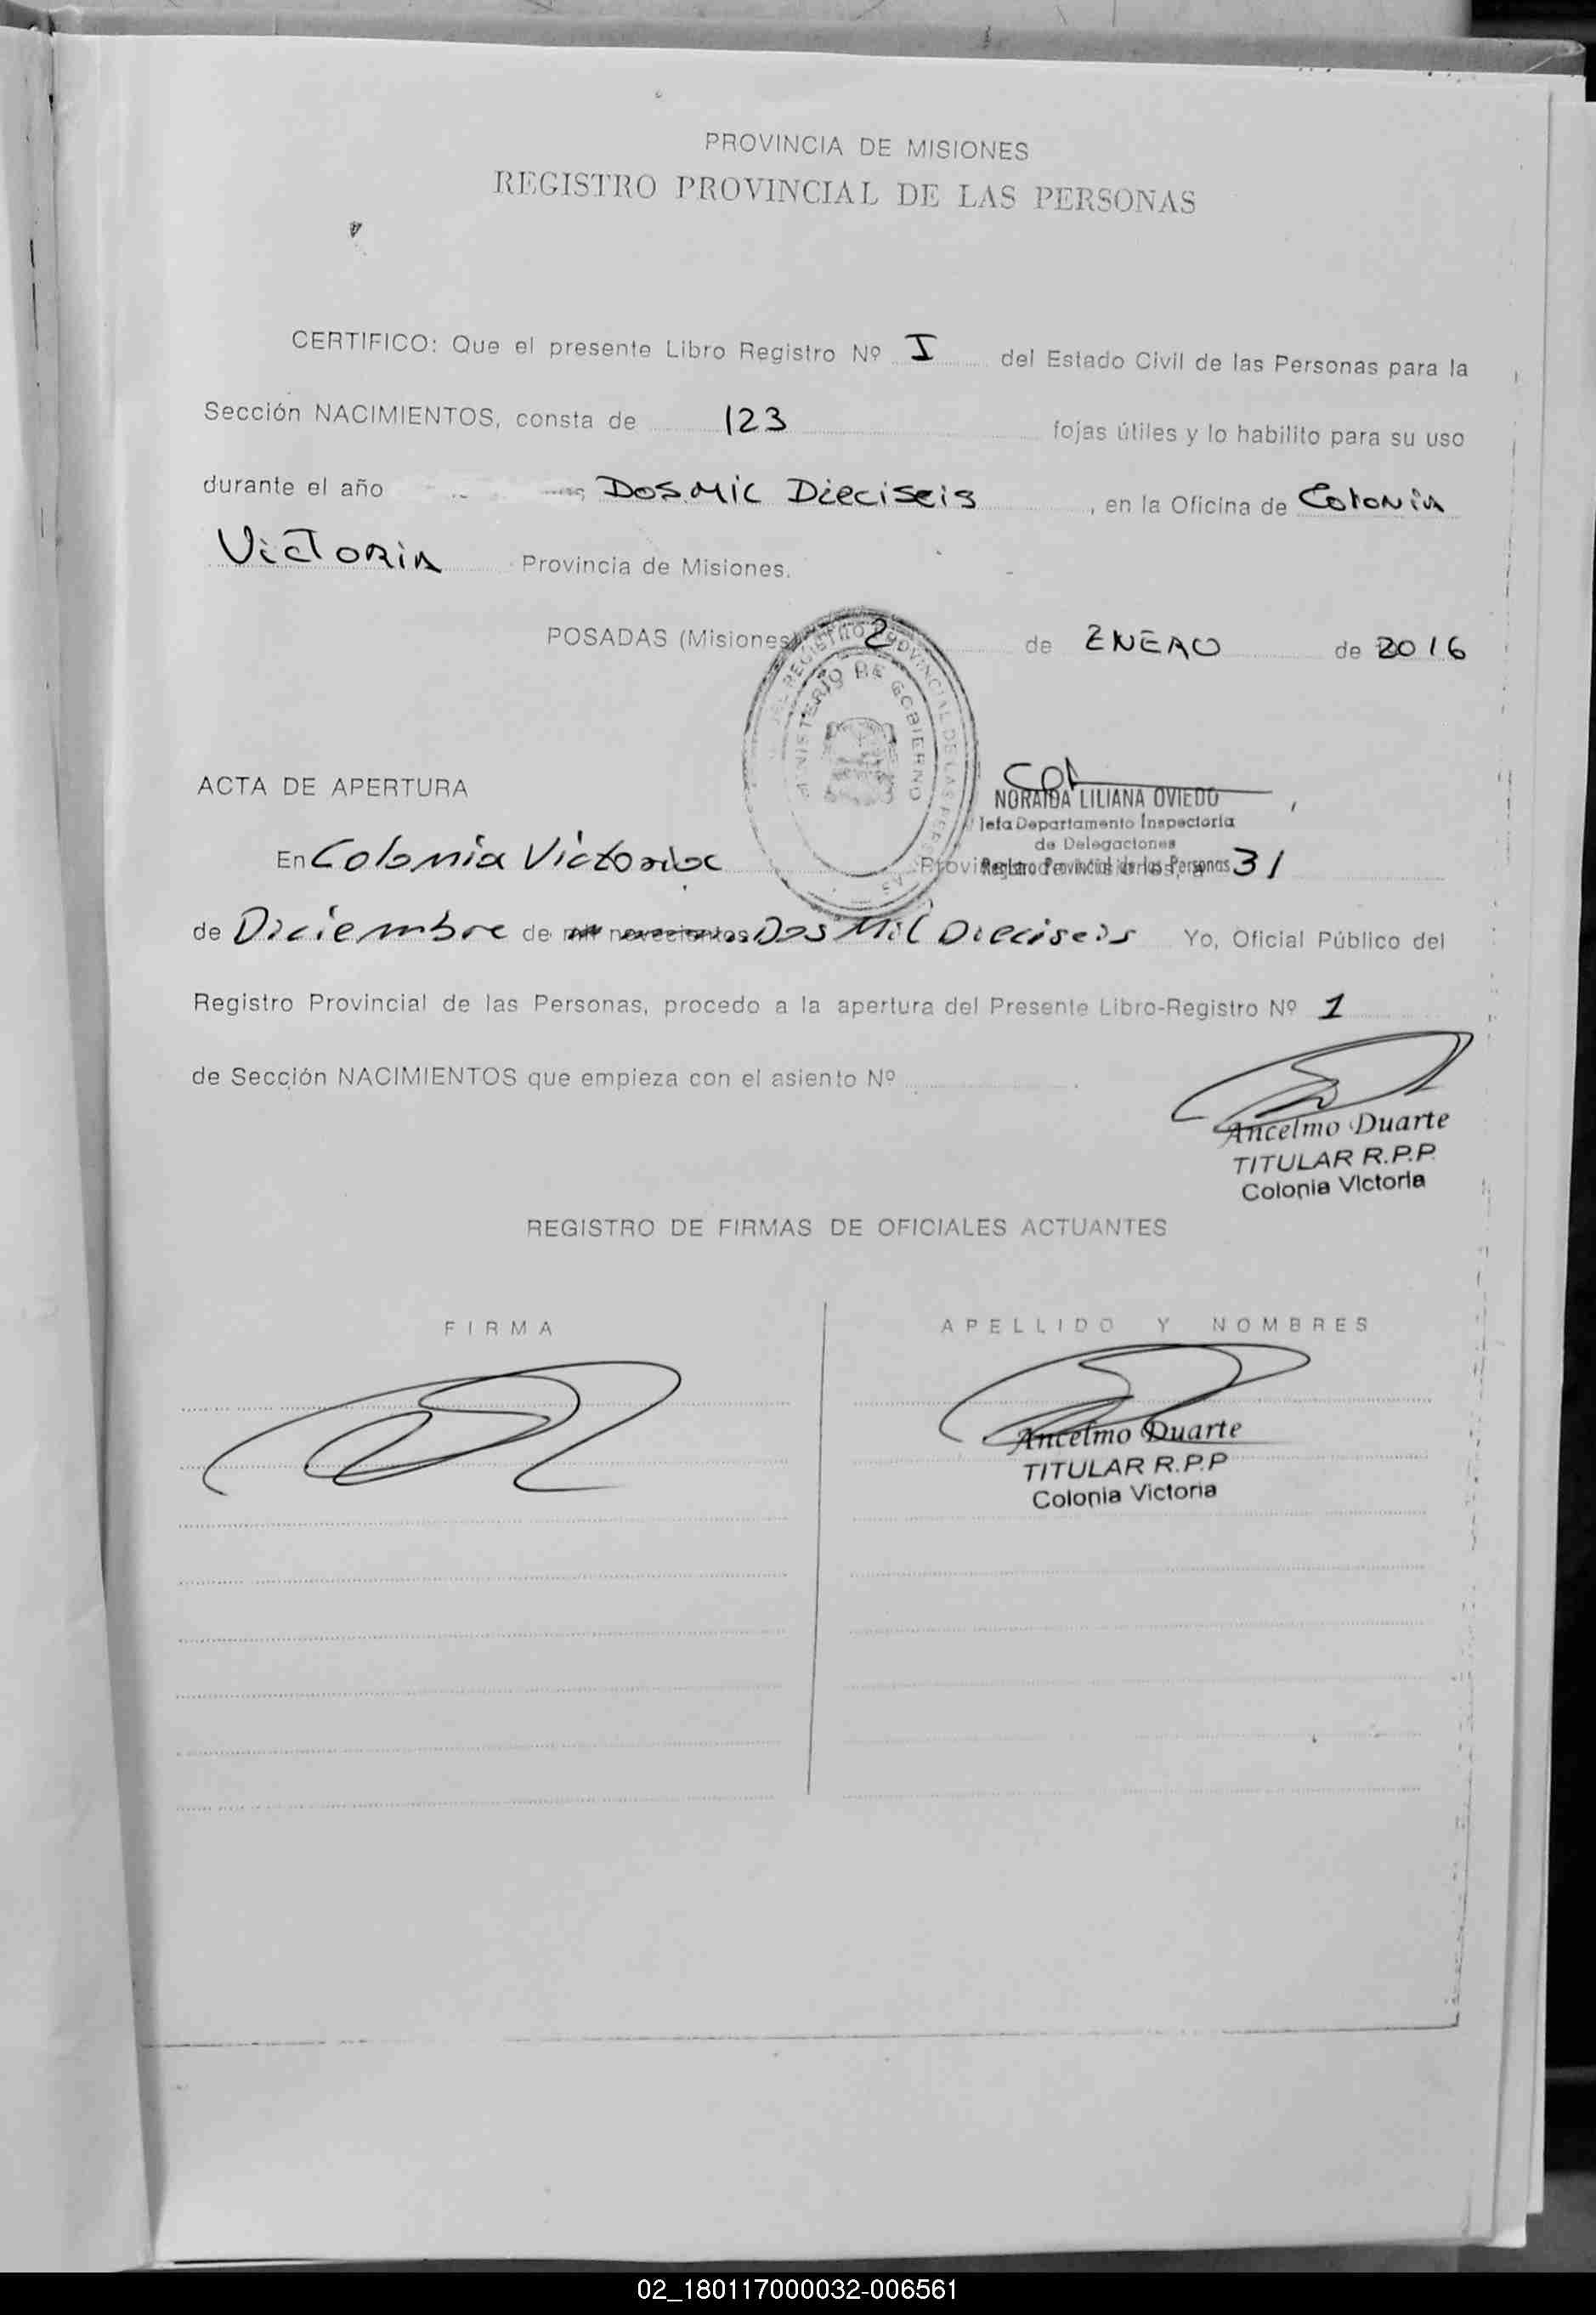 PROVINCIA DE MISIONES
REGISTRO PROVINCIAL DE LAS PERSONAS
CERTIFICO: Que el presente Libro Registro Nº I del Estado Civil de las Personas para la
Sección NACIMIENTOS, consta de 123 fojas útiles y lo habilito para su uso
durante el año Dos Mil Dieciseis, en la Oficina de Colonia
Victoria Provincia de Misiones.
POSADAS (Misiones) 2 de ENERO de 2016
REGISTRO PROVINCIAL DE LAS PERSONAS
MINISTERIO DE GOBIERNO
ACTA DE APERTURA
NORAIDA LILIANA OVIEDO
Jefa Departamento Inspectoría
de Delegaciones
Registro Provincial de las Personas
En Colonia Victoria 31
de Diciembre de mil novecientos Dos Mil Dieciseis Yo, Oficial Público del
Registro Provincial de las Personas, procedo a la apertura del Presente Libro-Registro Nº 1
de Sección NACIMIENTOS que empieza con el asiento Nº
Ancelmo Duarte
TITULAR R.P.P.
Colonia Victoria
REGISTRO DE FIRMAS DE OFICIALES ACTUANTES
FIRMA
APELLIDO Y NOMBRES
Ancelmo Duarte
TITULAR R.P.P
Colonia Victoria
02_180117000032-006561